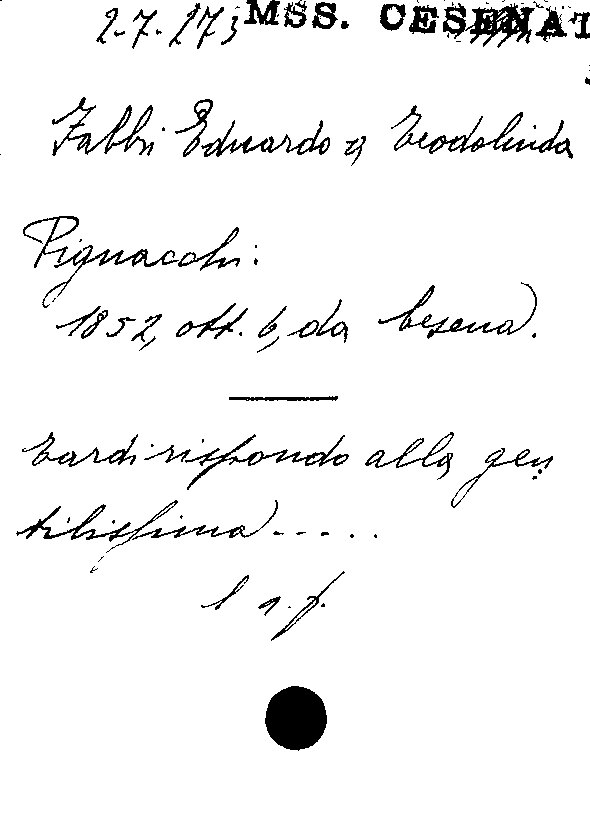 2-7.273 MSS. CESENAT
Fabbri Eduardo a Teodolinda
Pignacchi:
1852, ott. 6, da Cesena.
Tardi rispondo alla gen
tilissima -----
l a.f.